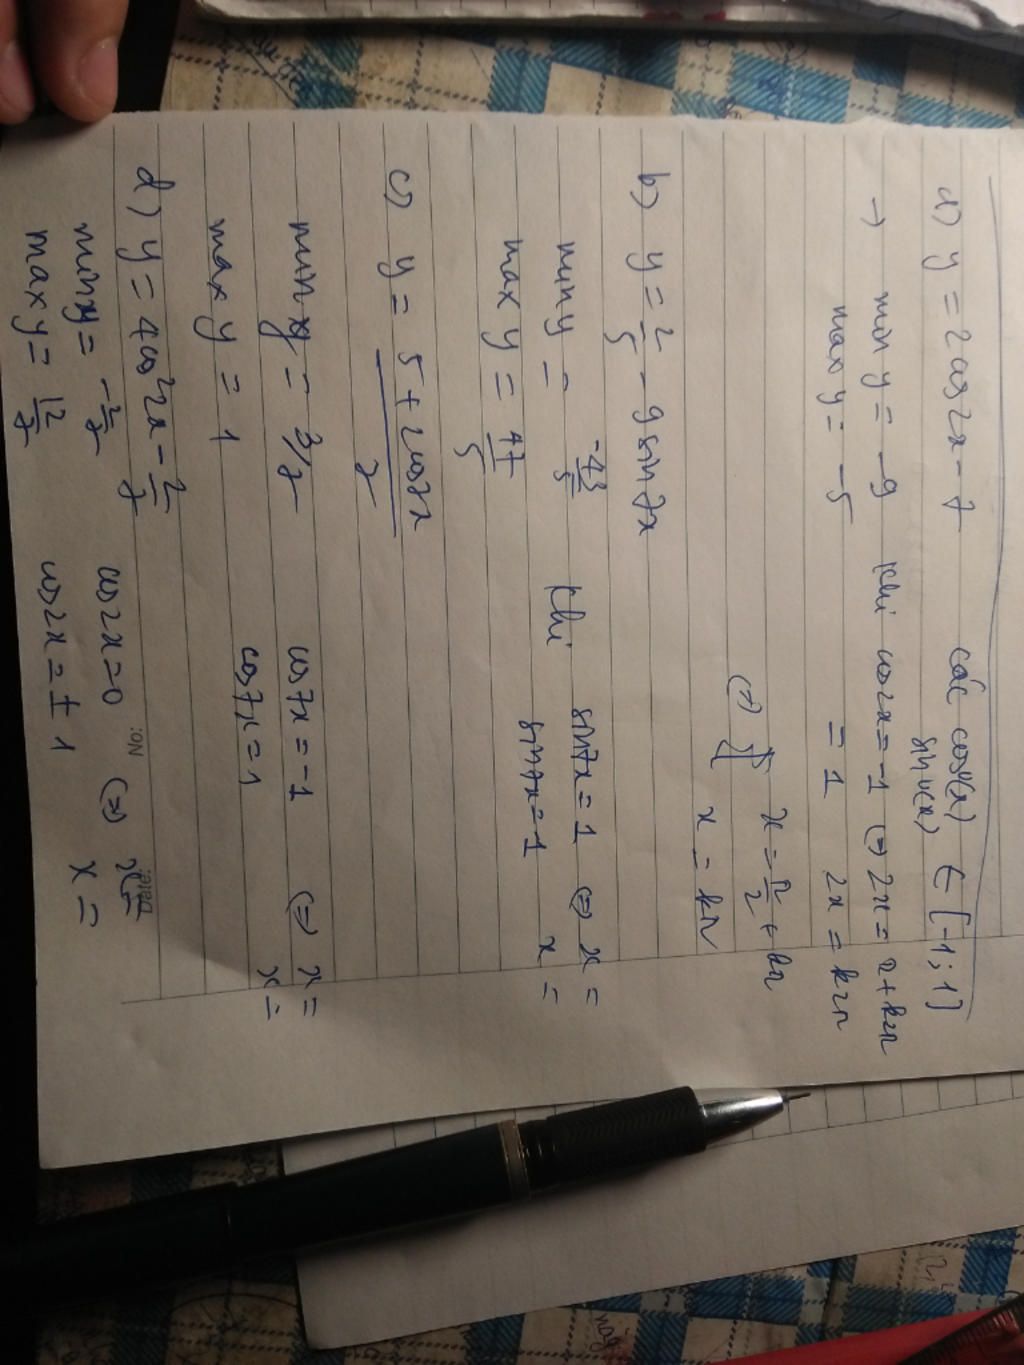 a) y = 2cos2x - 7 các cosu(x) ∈ [-1; 1]
sinu(x)
→ min y = -9 khi cos2x = -1 (=) 2x = π + k2π
max y = -5 = 1 2x = k2π
(=) x = π/2 + kπ
x = kπ
b) y = 2/5 - 9sin7x
min y = -43/5 khi sin7x = 1 (=) x =
max y = 47/5 sin7x = -1 x =
c) y = 5 + 2cos7x
min y = 3/7 cos7x = -1 (=) x =
max y = 1 cos7x = 1 x =
d) y = 4cos²2x - 2/7
min y = -2/7 cos2x = 0 (=) x =
max y = 12/7 cos2x = ±1 x =
No:
Date: